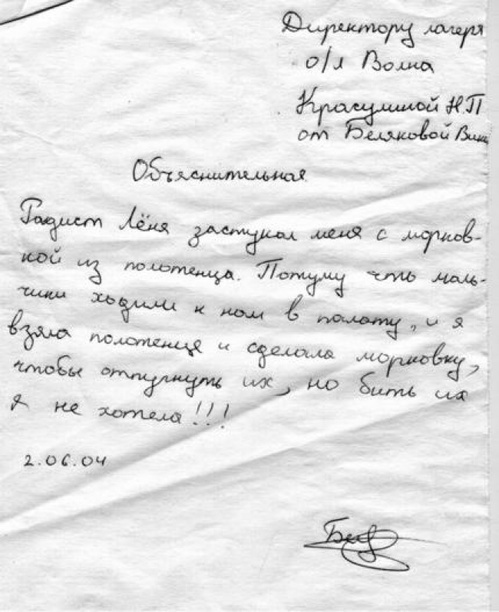 Директору лагеря
о/л Волна
Красулиной Н.П
от Беляковой Вики
Объяснительная
Радист Лёня застукал меня с морков-
кой из полотенца. Потуму что маль-
чики ходили к нам в палату, и я
взяла полотенце и сделала морковку,
чтобы отпугнуть их, но бить их
я не хотела!!!
2.06.04
Бел